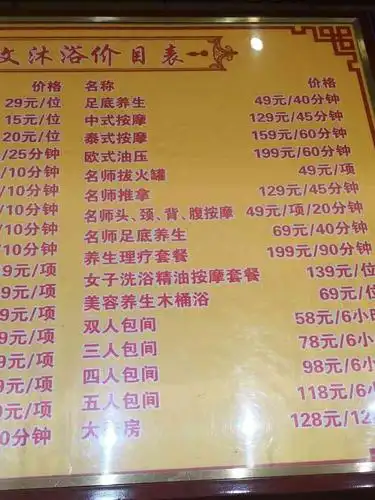 沐浴价目表
价格 名称 价格
29元/位 足底养生 49元/40分钟
15元/位 中式按摩 129元/45分钟
20元/位 泰式按摩 159元/60分钟
/25分钟 欧式油压 199元/60分钟
/10分钟 名师拔火罐 49元/项
/10分钟 名师推拿 129元/45分钟
/10分钟 名师头、颈、背、腹按摩 49元/项/20分钟
/10分钟 名师足底养生 69元/40分钟
/10分钟 养生理疗套餐 199元/90分钟
9元/项 女子洗浴精油按摩套餐 139元/位
9元/项 美容养生木桶浴 69元/位
9元/项 双人包间 58元/6小
9元/项 三人包间 78元/6小
9元/项 四人包间 98元/6小
9元/项 五人包间 118元/6小
0分钟 大 房 128元/12